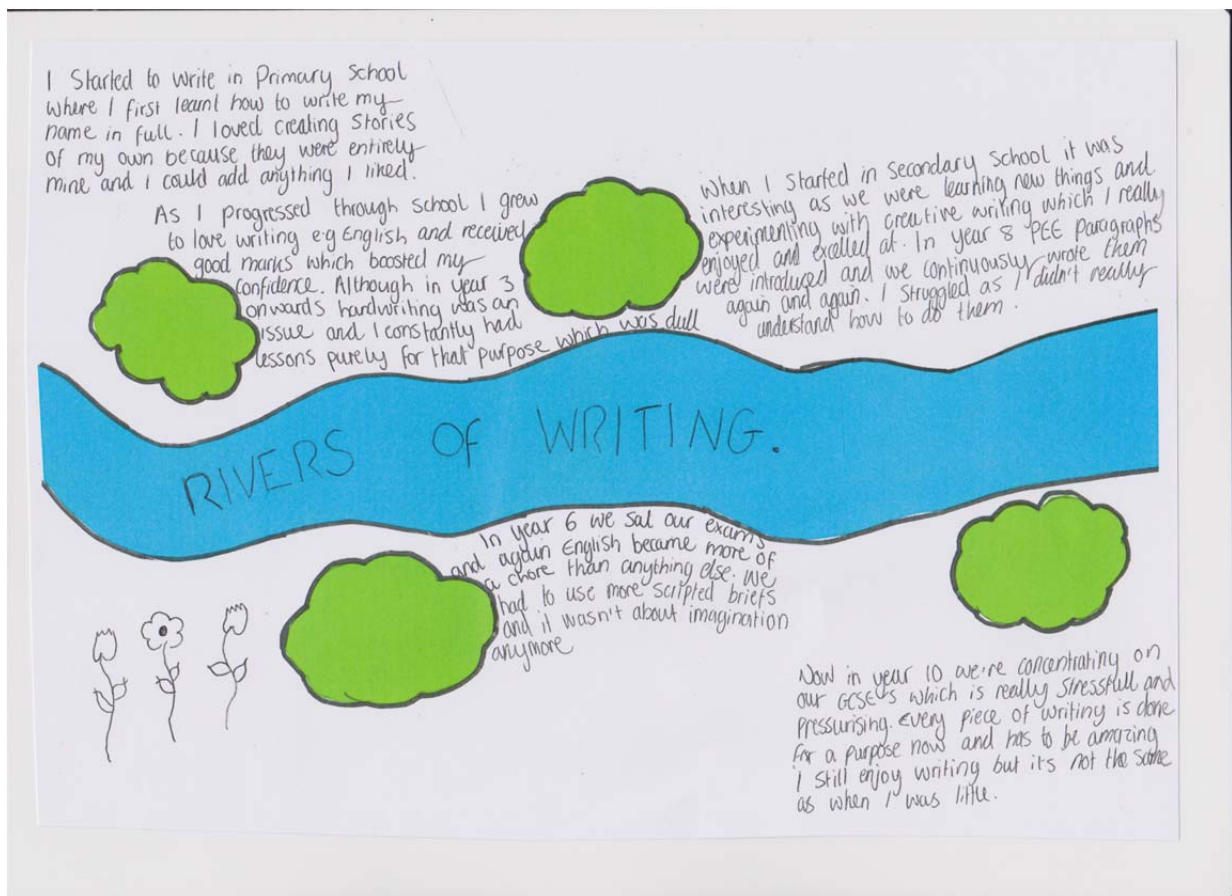 I Started to write in Primary School
where I first learnt how to write my
name in full. I loved creating Stories
of my own because they were entirely
mine and I could add anything I liked.
As I progressed through school I grew
to love writing e.g English and received
good marks which boosted my
confidence. Although in year 3
onwards handwriting was an
issue and I constantly had
lessons purely for that purpose which was dull
When I started in Secondary School it was
interesting as we were learning new things and
experimenting with creative writing which I really
enjoyed and excelled at. In Year 8 PEE Paragraphs
were introduced and we continuously wrote them
again and again. I struggled as I didn't really
understand how to do them.
RIVERS OF WRITING.
In year 6 we sat our exams
and again English became more of
a chore than anything else. We
had to use more scripted briefs
and it wasn't about imagination
anymore
Now in year 10 we're concentrating on
our GCSE's which is really stressfull and
pressurising. Every piece of writing is done
for a purpose now and has to be amazing
I still enjoy writing but its not the same
as when I was little.